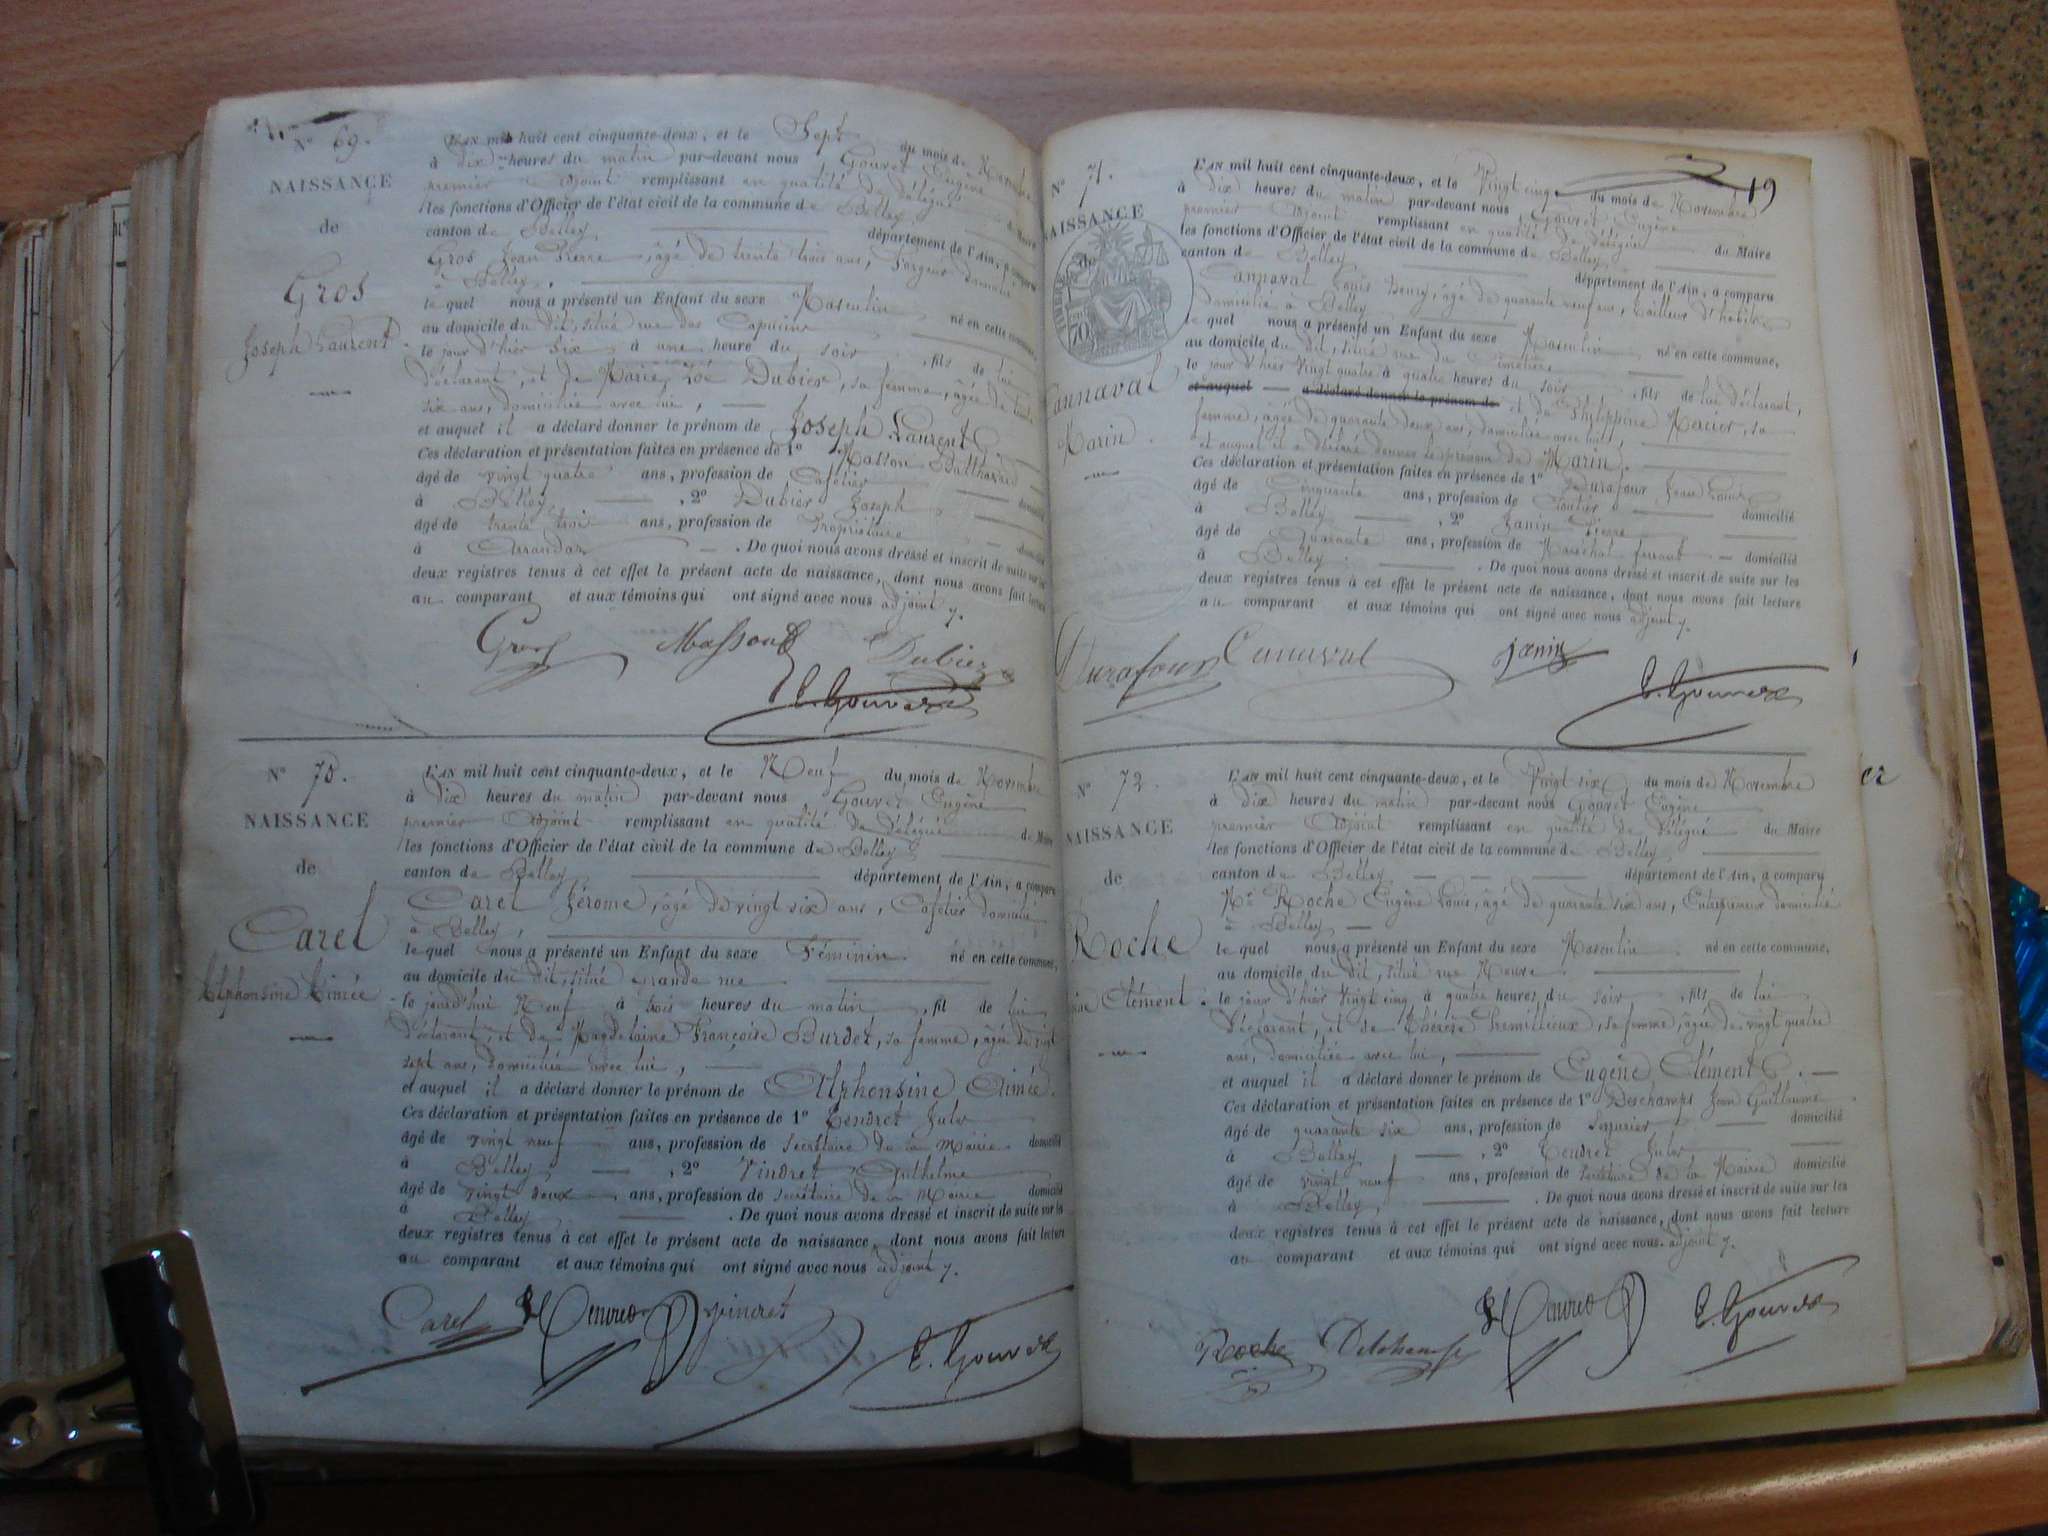 N° 69.
NAISSANCE
de
Gros
Joseph Laurent
L'AN mil huit cent cinquante-deux, et le Sept du mois de Novembre
à dix heures du matin par-devant nous Gouvet Eugène
premier adjoint remplissant en qualité de délégué du Maire
les fonctions d'Officier de l'état civil de la commune de Belley
canton de Belley département de l'Ain, a comparu
Gros Jean Pierre, âgé de trente trois ans, Forgeur domicilié
à Belley,
lequel nous a présenté un Enfant du sexe Masculin né en cette commune,
au domicile du dit, situé rue des Capucins
le jour d'hier Six à une heure du soir, fils de lui
déclarant, et de Marie Zoé Dubier, sa femme, âgée de trente
six ans, domiciliée avec lui,
et auquel il a déclaré donner le prénom de Joseph Laurent.
Ces déclaration et présentation faites en présence de 1° Masson Balthazard
âgé de vingt quatre ans, profession de Cafetier domicilié
à Belley, 2° Dubier Joseph
âgé de trente trois ans, profession de Propriétaire domicilié
à Arandas. De quoi nous avons dressé et inscrit de suite sur les
deux registres tenus à cet effet le présent acte de naissance, dont nous avons fait lecture
au comparant et aux témoins qui ont signé avec nous adjoint.
Gros Masson Dubier
E. Gouvet
N° 70.
NAISSANCE
de
Carel
Alphonsine Aimée
L'AN mil huit cent cinquante-deux, et le Neuf du mois de Novembre
à dix heures du matin par-devant nous Gouvet Eugène
premier Adjoint remplissant en qualité de délégué du Maire
les fonctions d'Officier de l'état civil de la commune de Belley
canton de Belley département de l'Ain, a comparu
Carel Jérome, âgé de vingt six ans, Cafetier domicilié
à Belley,
lequel nous a présenté un Enfant du sexe Féminin. né en cette commune,
au domicile du dit, situé grande rue
le jourd'hui Neuf à trois heures du matin, fil de lui
déclarant, et de Magdelaine Françoise Burdet, sa femme, âgée de vingt
sept ans, domiciliée avec lui,
et auquel il a déclaré donner le prénom de Alphonsine Aimée.
Ces déclaration et présentation faites en présence de 1° Tendret Jules
âgé de vingt neuf ans, profession de secrétaire de la Mairie domicilié
à Belley, 2° Vindret Anthelme
âgé de vingt deux ans, profession de secrétaire de la Mairie domicilié
à Belley. De quoi nous avons dressé et inscrit de suite sur les
deux registres tenus à cet effet le présent acte de naissance, dont nous avons fait lecture
au comparant et aux témoins qui ont signé avec nous adjoint.
Carel Tendret Vindret
E. Gouvet
19
N° 71.
NAISSANCE
de
TIMBRE
70
Cannaval
Marin.
L'AN mil huit cent cinquante-deux, et le Vingt cinq du mois de Novembre
à dix heures du matin par-devant nous Gouvet Eugène
premier Adjoint remplissant en qualité de délégué du Maire
les fonctions d'Officier de l'état civil de la commune de Belley
canton de Belley département de l'Ain, a comparu
Cannaval Louis Henry, âgé de quarante neuf ans, tailleur d'habits
domicilié à Belley
lequel nous a présenté un Enfant du sexe Masculin né en cette commune,
au domicile du dit, situé rue du Cimetière
le jour d'hier Vingt quatre à quatre heures du soir, fils de lui déclarant,
et auquel a déclaré donner le prénom de et de Phylippine Mercier, sa
femme, âgée de quarante deux ans, domiciliée avec lui,
et auquel il a déclaré donner le prénom de Marin.
Ces déclaration et présentation faites en présence de 1° Durafour Jean Louis
âgé de Cinquante ans, profession de Cloutier domicilié
à Belley, 2° Janin Pierre
âgé de Quarante ans, profession de Maréchal ferrant domicilié
à Belley. De quoi nous avons dressé et inscrit de suite sur les
deux registres tenus à cet effet le présent acte de naissance, dont nous avons fait lecture
au comparant et aux témoins qui ont signé avec nous adjoint.
Durafour Canaval janin
E. Gouvet
N° 72.
NAISSANCE
de
Roche
Clément
L'AN mil huit cent cinquante-deux, et le Vingt six du mois de Novembre
à dix heures du matin par-devant nous Gouvet Eugène
premier Adjoint remplissant en qualité de délégué du Maire
les fonctions d'Officier de l'état civil de la commune de Belley
canton de Belley département de l'Ain, a comparu
Mr Roche Eugène Louis, âgé de quarante six ans, Entrepreneur domicilié
à Belley
lequel nous a présenté un Enfant du sexe Masculin né en cette commune,
au domicile du dit, situé rue Neuve.
le jour d'hier Vingt cinq à quatre heures du soir, fils de lui
déclarant, et de Thérèse Tremillieux, sa femme, âgée de vingt quatre
ans, domiciliée avec lui,
et auquel il a déclaré donner le prénom de Eugène Clément.
Ces déclaration et présentation faites en présence de 1° Deschamps Jean Guillaume
âgé de quarante six ans, profession de Serrurier domicilié
à Belley, 2° Tendret Jules
âgé de vingt neuf ans, profession de secrétaire de la Mairie domicilié
à Belley. De quoi nous avons dressé et inscrit de suite sur les
deux registres tenus à cet effet le présent acte de naissance, dont nous avons fait lecture
au comparant et aux témoins qui ont signé avec nous adjoint.
Roche Deschamps Tendret E. Gouvet